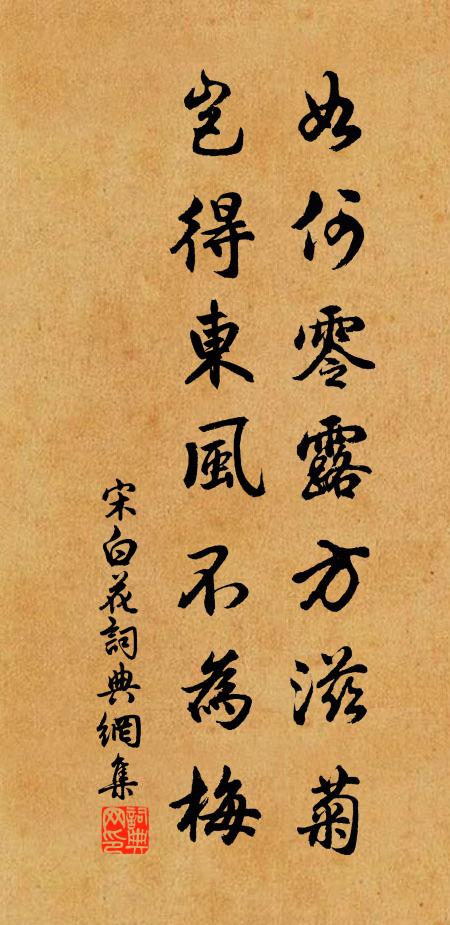 如何零露方滋菊
豈得東風不為梅
宋白花詞典網集
詞典網印